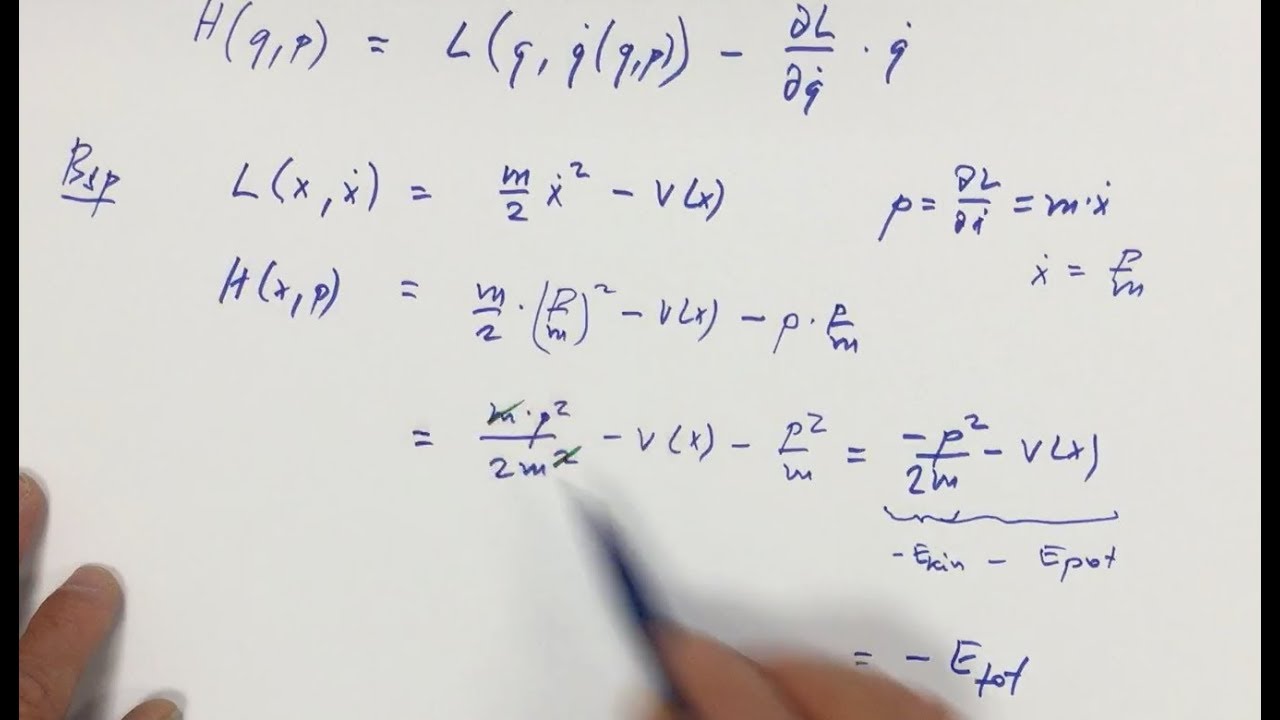 H(q,p) = L(q, q̇(q,p)) - ∂L/∂q̇ · q̇
Bsp L(x,ẋ) = m/2 ẋ² - V(x) p = ∂L/∂ẋ = m·ẋ
ẋ = p/m
H(x,p) = m/2 · (p/m)² - V(x) - p · p/m
= m·p²/2m² - V(x) - p²/m = -p²/2m - V(x)
-Ekin - Epot
= - Etot